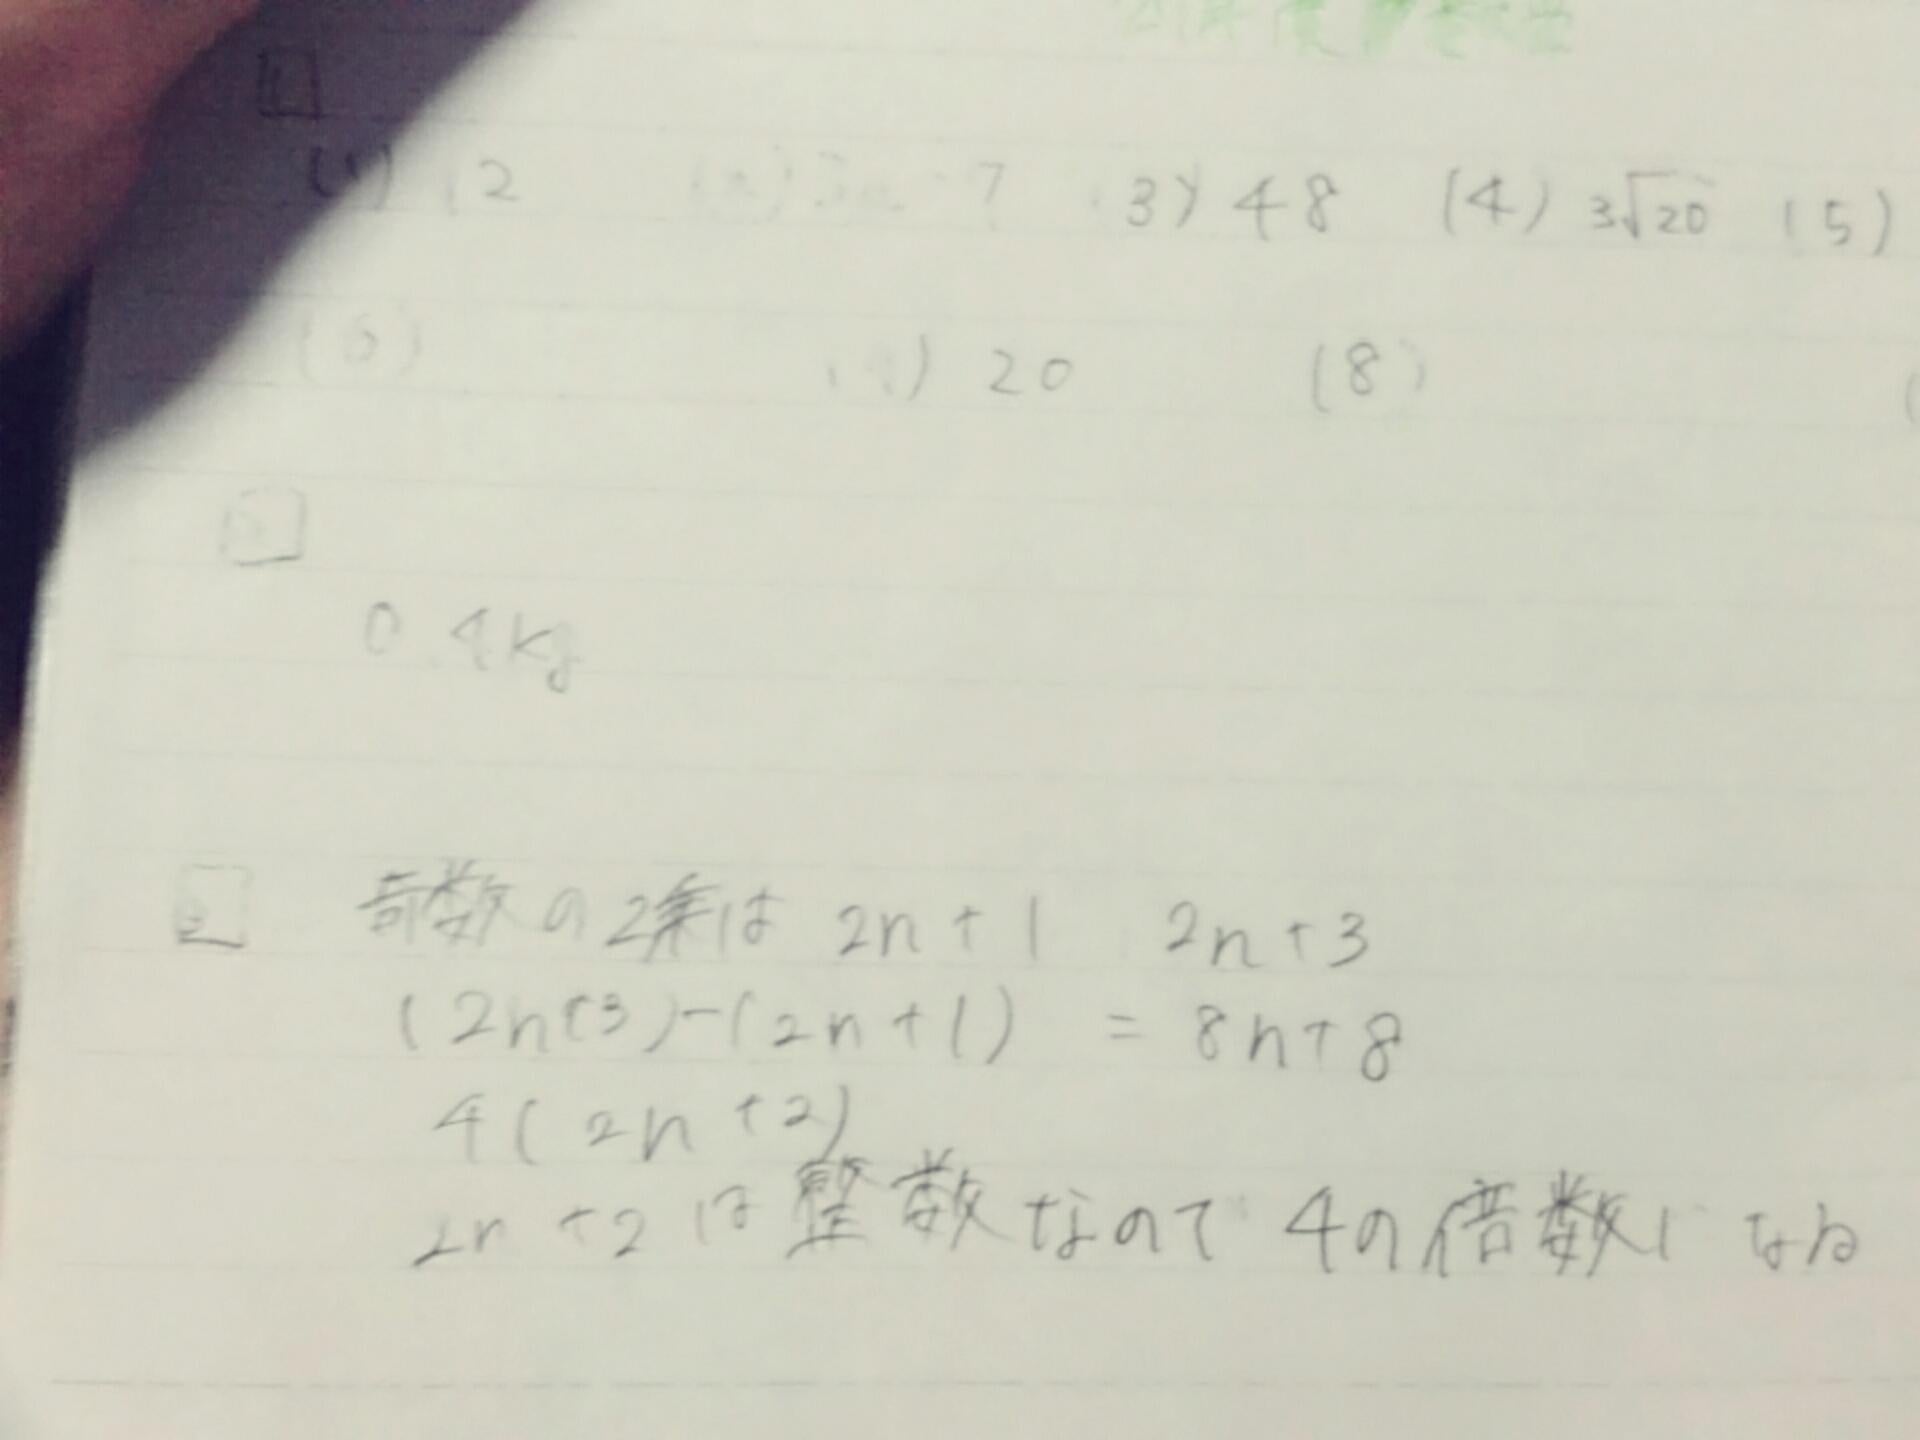 1
(1) 12 7 (3) 48 (4) 3√20 (5)
(6) 20 (8)
0.4kg
3 奇数の2乗は 2n+1 2n+3
(2n+3)-(2n+1) = 8n+8
4(2n+2)
2n+2は整数なので 4の倍数になる